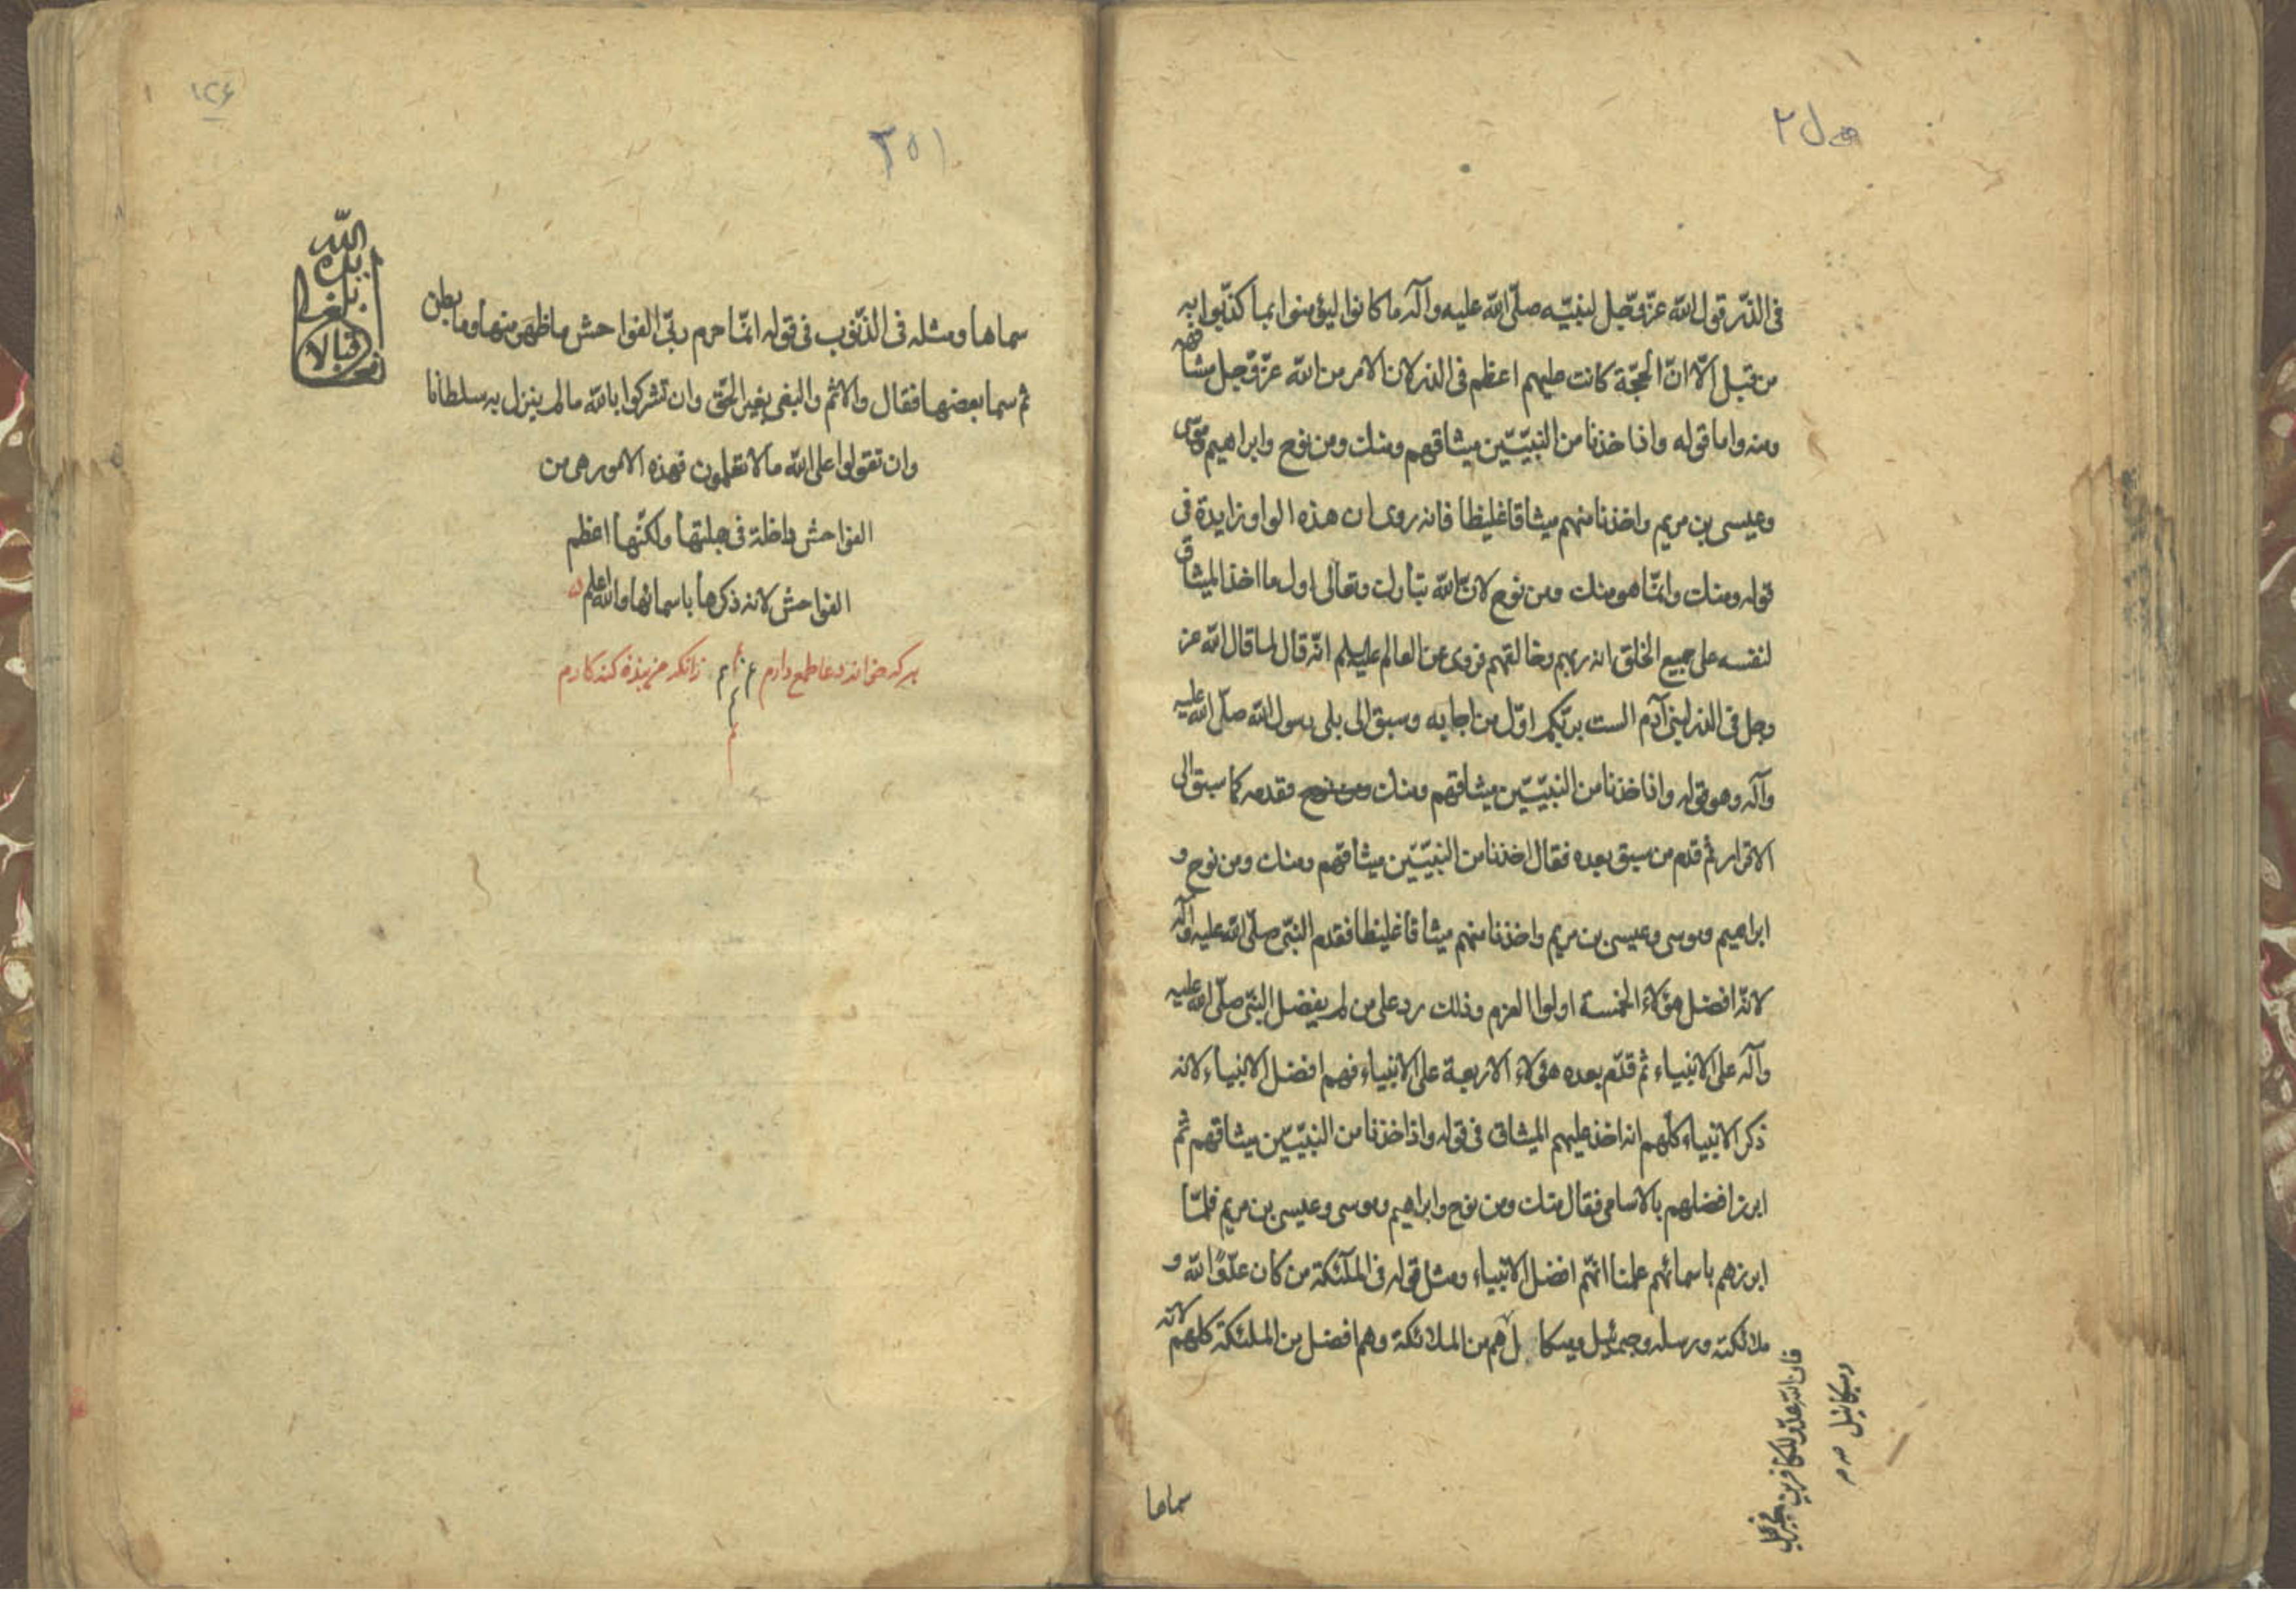 في الذر قول الله عز وجل لنبيه صلى الله عليه وآله ما كانوا ليؤمنوا بما كذبوا به
من قبل الا ان الحجة كانت عليهم اعظم في الذر لان الامر من الله عز وجل مشافهة
ومنه واما قوله واذ اخذنا من النبيين ميثاقهم ومنك ومن نوح وابراهيم وموسى
وعيسى بن مريم واخذنا منهم ميثاقا غليظا فانه روى ان هذه الواو زايدة في
قوله ومنك وانما هو منك ومن نوح لان الله تبارك وتعالى اول ما اخذ الميثاق
لنفسه على جميع الخلق انه ربهم وخالقهم فروى عن العالم عليه السلم انه قال لما قال الله عز
وجل في الذر لبني آدم الست بربكم اول من اجابه وسبق الى بلى رسول الله صلى الله عليه
وآله وهو قوله واذ اخذنا من النبيين ميثاقهم ومنك ومن نوح فقدمه كما سبق الى
الاقرار ثم قدم من سبق بعده فقال اخذنا من النبيين ميثاقهم ومنك ومن نوح و
ابراهيم وموسى وعيسى بن مريم واخذنا منهم ميثاقا غليظا فقدم النبي صلى الله عليه وآله
لانه افضل هؤلاء الخمسة اولوا العزم وذلك رد على من لم يفضل النبي صلى الله عليه
وآله على الانبياء ثم قدم بعده هؤلاء الاربعة على الانبياء فهم افضل الانبياء لانه
ذكر الانبياء كلهم انه اخذ عليهم الميثاق في قوله واذ اخذنا من النبيين ميثاقهم ثم
ابرز افضلهم بالاسامى فقال منك ومن نوح وابراهيم وموسى وعيسى بن مريم فلما
ابرزهم باسمائهم علمنا انهم افضل الانبياء ومثل قوله في الملائكة من كان عدوا لله و
ملائكته ورسله وجبرئيل وميكا ل هم من الملائكة وهم افضل من الملئكة كلهم لانه
فان الله عدو للكافرين فجبرئيل
وميكائيل
سماها
٢٥١
١٢٤
سماها ومثله في الذنوب في قوله انما حرم ربي الفواحش ما ظهر منها وما بطن
ثم سما بعضها فقال والاثم والبغى بغير الحق وان تشركوا بالله ما لم ينزل به سلطانا
وان تقولوا على الله ما لا تعلمون فهذه الامور هى من
الفواحش داخلة في جملتها ولكنها اعظم
الفواحش لانه ذكرها باسمائها والله اعلم
هر که خواند دعا طمع دارم زانکه من بنده کنه کارم
بلغ قبالا